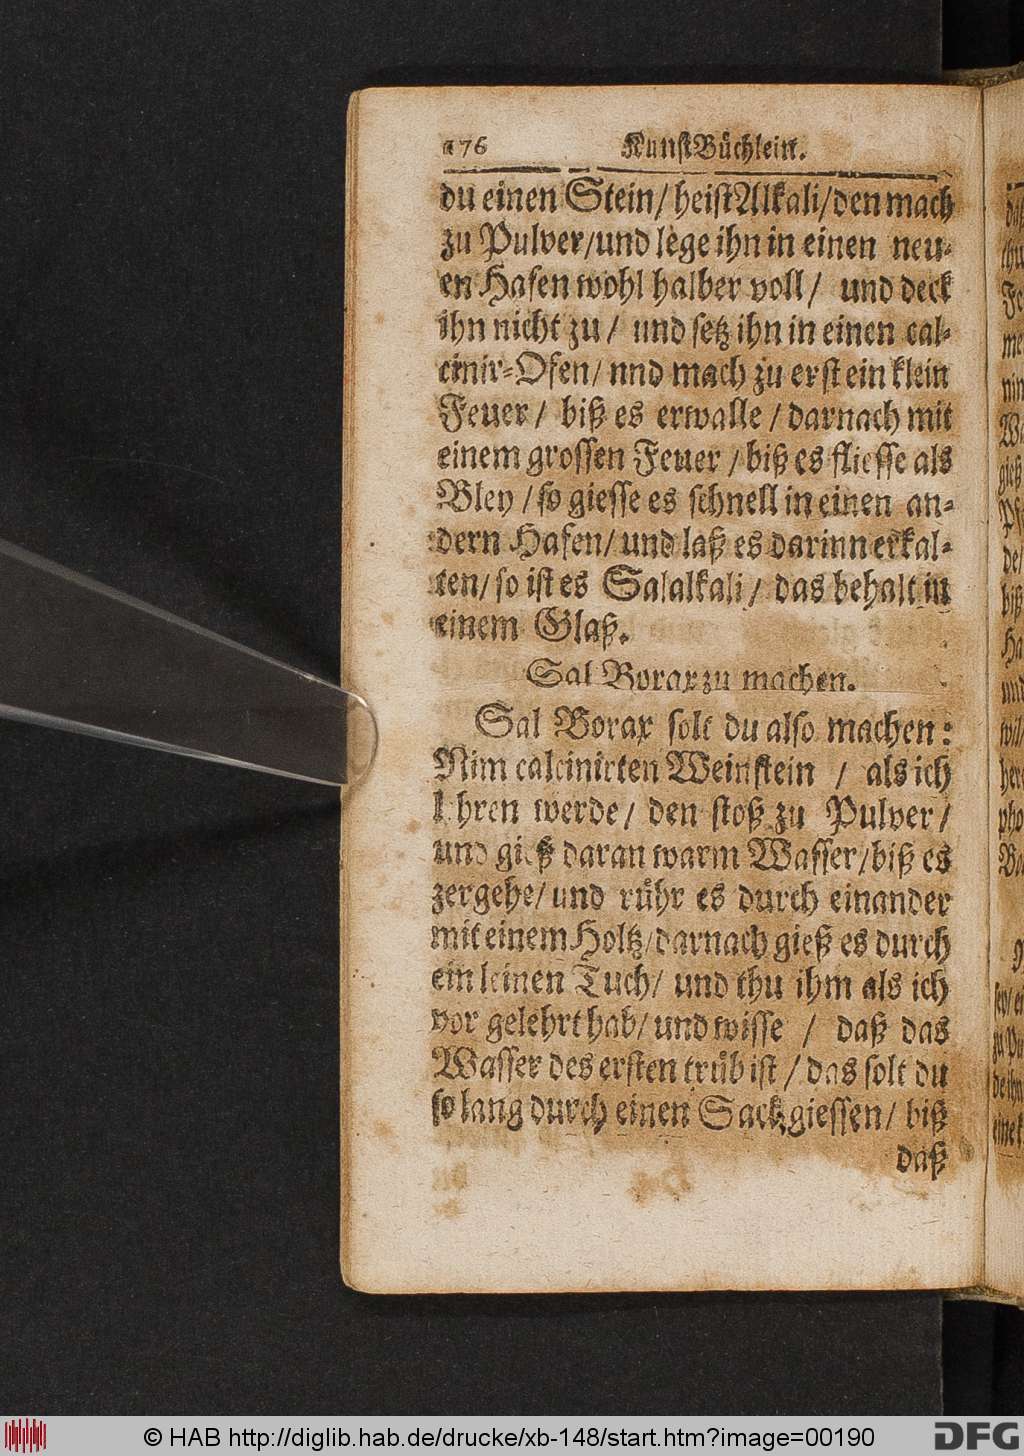 176 KunstBüchlein.
du einen Stein/ heist Alkali/ den mach
zu Pulver/ und lege ihn in einen neu-
en Hafen wohl halber voll/ und deck
ihn nicht zu/ und setz ihn in einen cal-
cinir-Ofen/ nnd mach zu erst ein klein
Feuer/ biß es erwalle/ darnach mit
einem grossen Feuer/ biß es fliesse als
Bley/ so giesse es schnell in einen an-
dern Hafen/ und laß es darinn erkal-
ten/ so ist es Salalkali/ das behalt in
einem Glaß.
Sal Borax zu machen.
Sal Borax solt du also machen:
Nim calcinirten Weinstein/ als ich
lehren werde/ den stoß zu Pulver/
und gieß daran warm Wasser/ biß es
zergehe/ und rühr es durch einander
mit einem Holtz/ darnach gieß es durch
ein leinen Tuch/ und thu ihm als ich
vor gelehrt hab/ und wisse/ daß das
Wasser des ersten trüb ist/ das solt du
so lang durch einen Sack giessen/ biß
daß
© HAB http://diglib.hab.de/drucke/xb-148/start.htm?image=00190
DFG